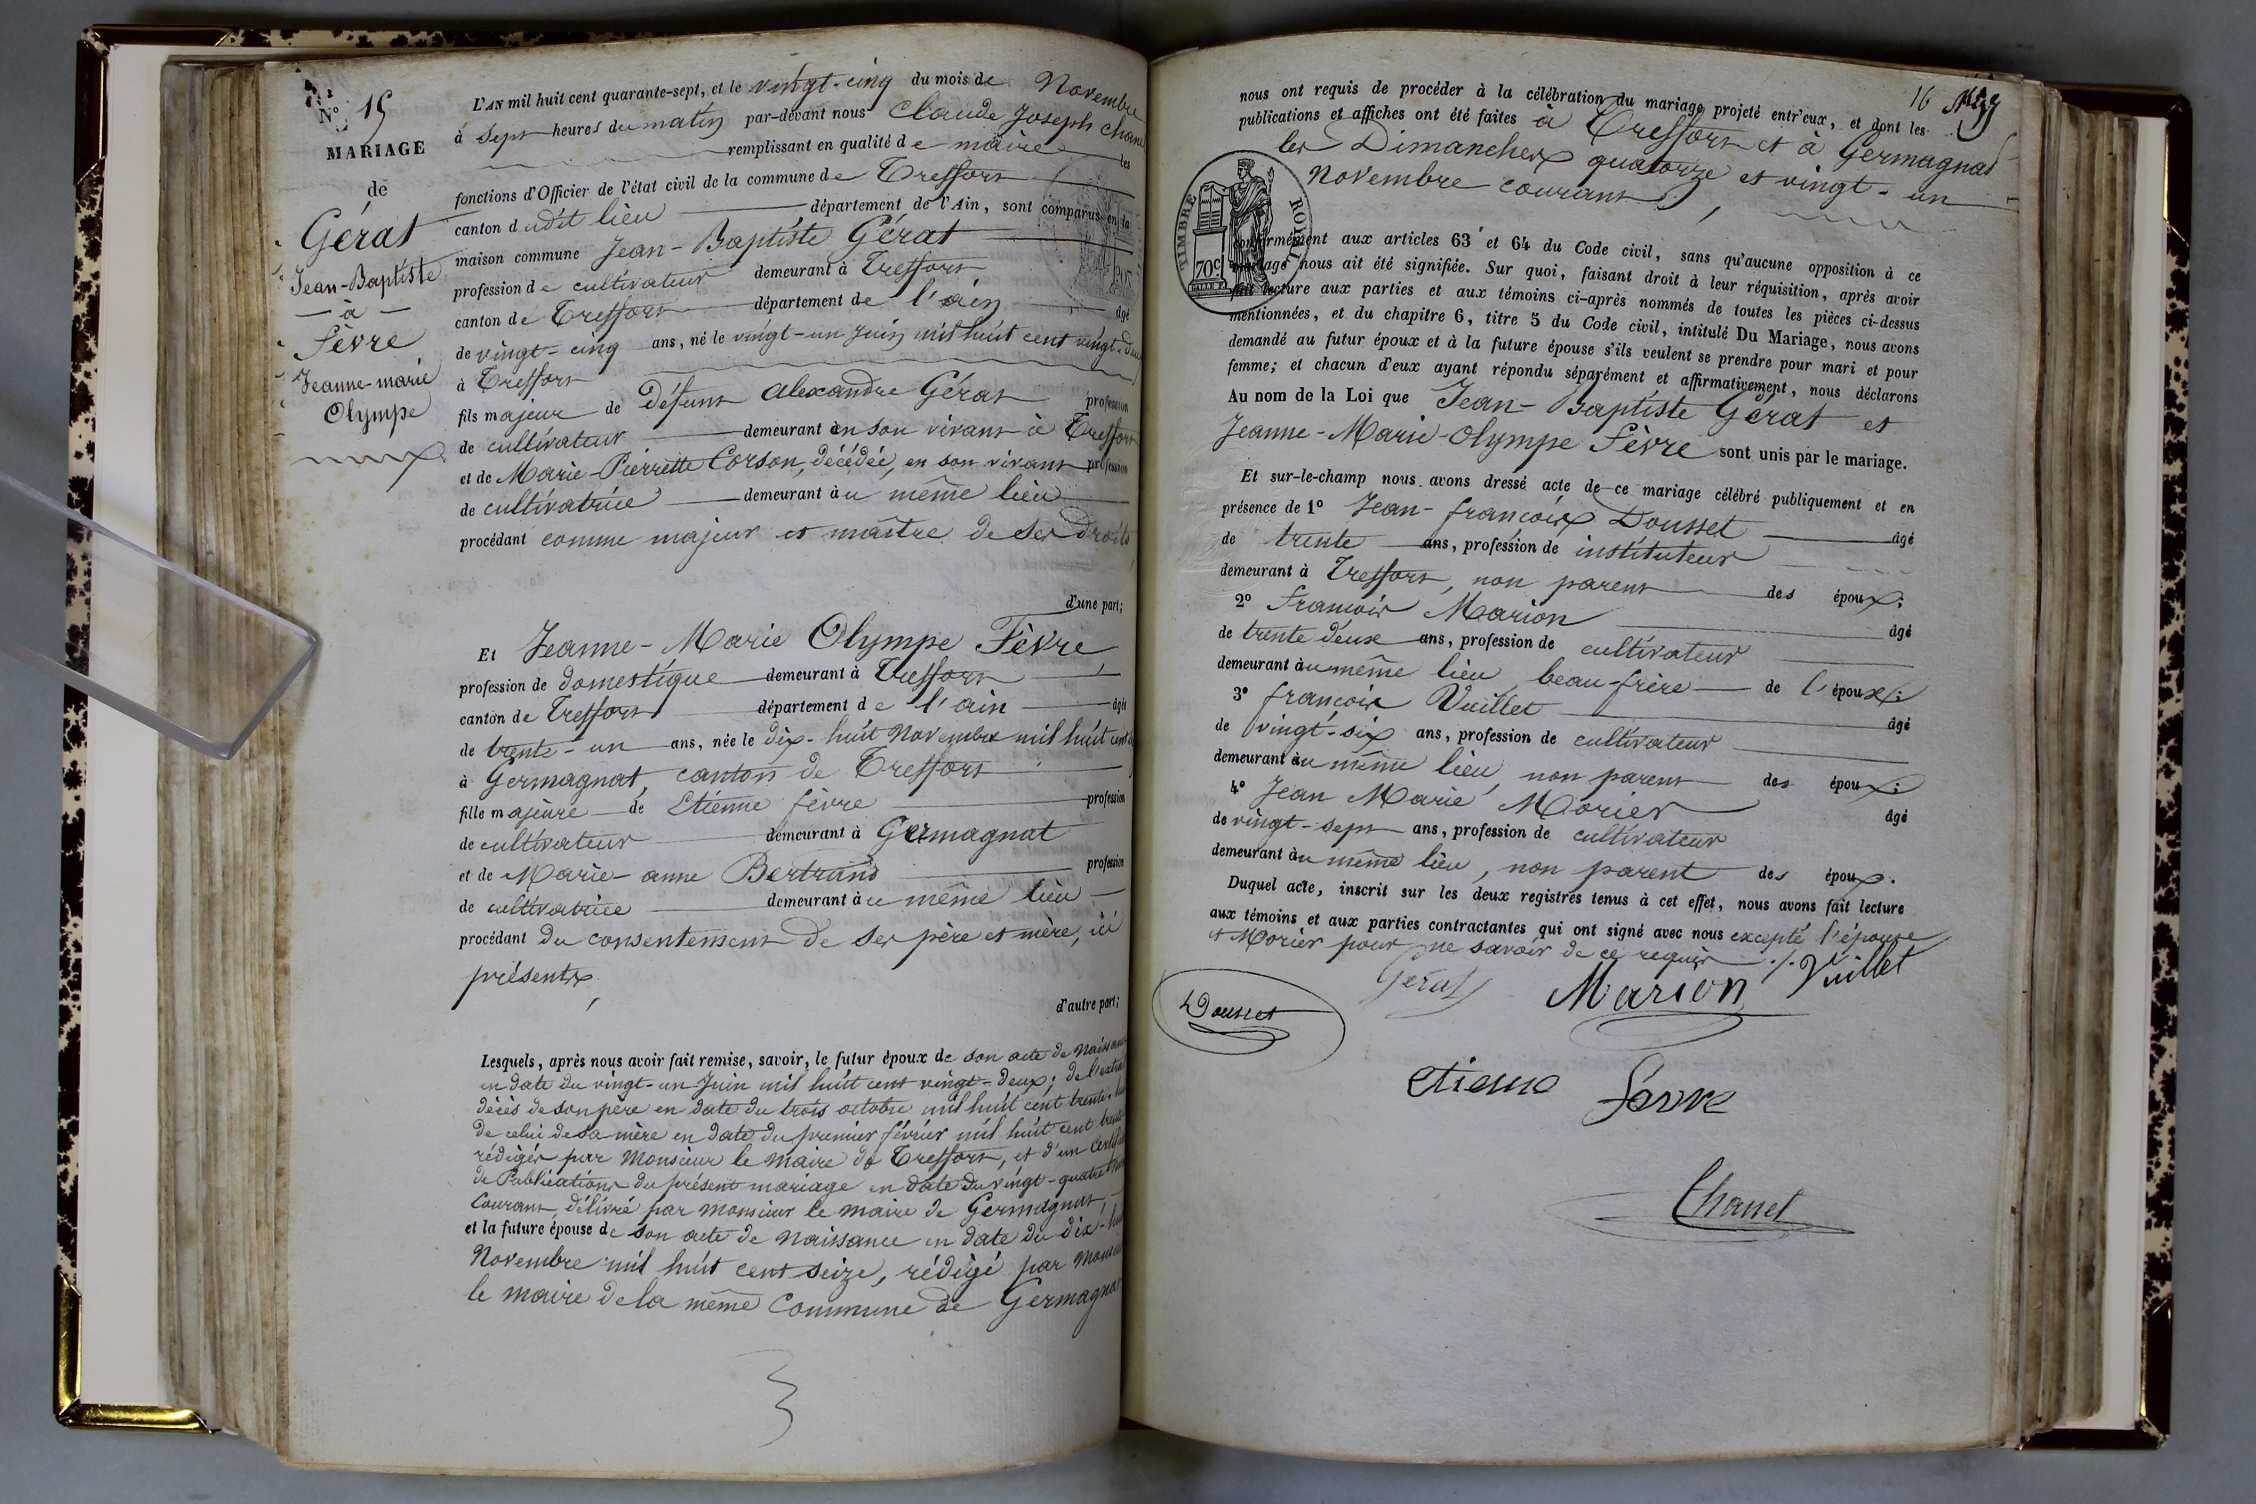 N° 15
MARIAGE
de
Gérat
Jean-Baptiste
à
Fèvre
Jeanne-marie
Olympe
L'AN mil huit cent quarante-sept, et le vingt-cinq du mois de Novembre
à Sept heures du matin par-devant nous Claude Joseph Chanel
remplissant en qualité de maire les
fonctions d'Officier de l'état civil de la commune de Treffort
canton dudit lieu département de l'Ain, sont comparus en la
maison commune Jean-Baptiste Gérat
profession de cultivateur demeurant à Treffort
canton de Treffort département de l'ain âgé
de vingt-cinq ans, né le vingt-un Juin mil huit cent vingt-deux
à Treffort
fils majeur de Défunt Alexandre Gérat profession
de cultivateur demeurant en son vivant à Treffort
et de Marie-Pierrette Corson, décédée, en son vivant profession
de cultivatrice demeurant au même lieu
procédant comme majeur et maître de ses droits
d'une part;
Et Jeanne-Marie Olympe Fèvre,
profession de domestique demeurant à Treffort
canton de Treffort département de l'ain âgée
de trente-un ans, née le dix-huit Novembre mil huit cent
à Germagnat, canton de Treffort
fille majeure de Etienne fèvre profession
de cultivateur demeurant à Germagnat
et de Marie-anne Bertrand profession
de cultivatrice demeurant au même lieu
procédant du consentement de ses père et mère, ici
présents,
d'autre part;
Lesquels, après nous avoir fait remise, savoir, le futur époux de son acte de Naissance
en date du vingt-un Juin mil huit cent vingt-deux; de l'extrait
décès de son père en date du trois octobre mil huit cent trente-
de celui de sa mère en date du premier février mil huit cent trente
rédigés par Monsieur le maire de Treffort, et d'un certificat
de Publications du présent mariage en date du vingt-quatre
Courant, délivré par Monsieur le maire de Germagnat,
et la future épouse de son acte de Naissance en date du dix-huit
Novembre mil huit cent seize, rédigé par Monsieur
le maire de la même Commune de Germagnat
16
nous ont requis de procéder à la célébration du mariage projeté entr'eux, et dont les
publications et affiches ont été faites à Treffort et à Germagnat
les Dimanches quatorze et vingt-un
Novembre courant,
TIMBRE ROYAL
70c
conformément aux articles 63 et 64 du Code civil, sans qu'aucune opposition à ce
mariage nous ait été signifiée. Sur quoi, faisant droit à leur réquisition, après avoir
fait lecture aux parties et aux témoins ci-après nommés de toutes les pièces ci-dessus
mentionnées, et du chapitre 6, titre 5 du Code civil, intitulé Du Mariage, nous avons
demandé au futur époux et à la future épouse s'ils veulent se prendre pour mari et pour
femme; et chacun d'eux ayant répondu séparément et affirmativement, nous déclarons
Au nom de la Loi que Jean-Baptiste Gérat et
Jeanne-Marie-Olympe Fèvre sont unis par le mariage.
Et sur-le-champ nous avons dressé acte de ce mariage célébré publiquement et en
présence de 1° Jean-françois Dousset âgé
de trente ans, profession de instituteur
demeurant à Treffort, non parent des époux;
2° François Marion âgé
de trente deux ans, profession de cultivateur
demeurant au même lieu, beau-frère de l'époux;
3° françois Vuillet âgé
de vingt-six ans, profession de cultivateur
demeurant au même lieu, non parent des époux;
4° Jean Marie Morier âgé
de vingt-sept ans, profession de cultivateur
demeurant au même lieu, non parent des époux.
Duquel acte, inscrit sur les deux registres tenus à cet effet, nous avons fait lecture
aux témoins et aux parties contractantes qui ont signé avec nous excepté l'épouse
et Morier pour ne savoir de ce requis ./.
Gérat Marion Vuillet
Dousset
etiene fèvre
Chanel